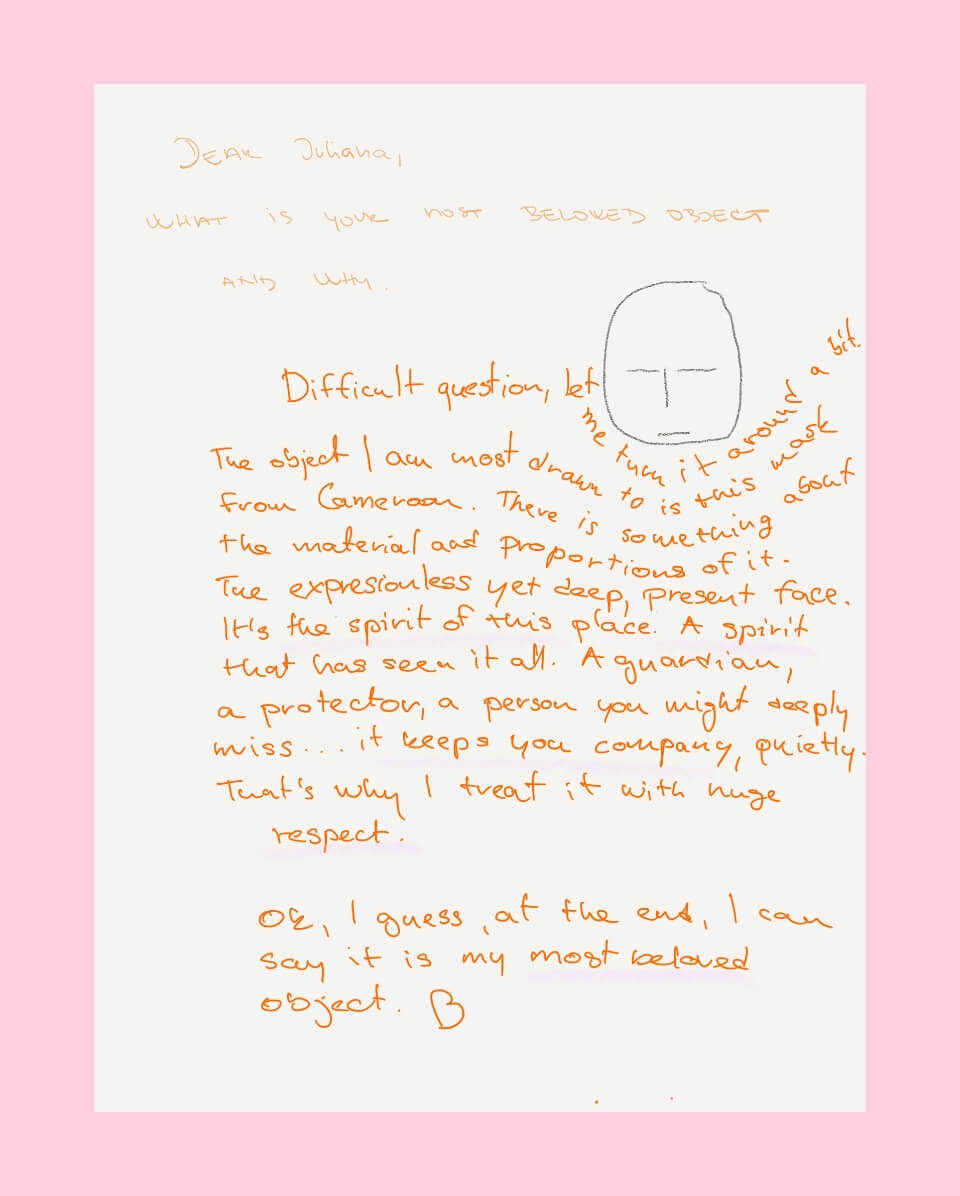 DEAR Juliana,
WHAT is your most BELOVED OBJECT
AND WHY.
Difficult question, let me turn it around a bit.
The object I am most drawn to is this mask
from Cameroon. There is something about
the material and proportions of it.
The expresionless yet deep, present face.
It's the spirit of this place. A spirit
that has seen it all. A guardian,
a protector, a person you might deeply
miss... it keeps you company, quietly.
That's why I treat it with huge
respect.
Ok, I guess, at the end, I can
say it is my most beloved
object.